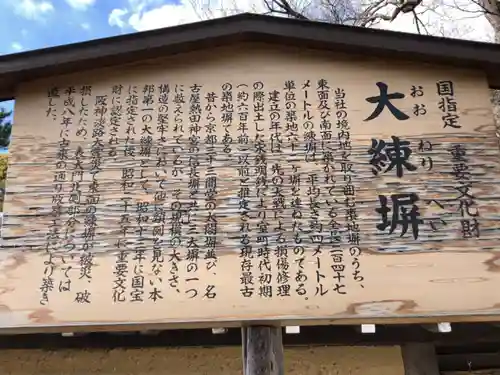 国指定 重要文化財
おお ねり べい
大練塀
当社の境内地を取り囲む築地塀のうち、
東面及び南面に築かれている全長二四七
メートルの大練塀は、平均長さ約四メートル
単位の築地六十二ヶ所を連ねたものである。
建立の年代は、先の大戦による損傷修理
の際出土した宋銭瑞銭により室町時代初期
(約六百年前)以前と推定される現存最古
の築地塀である。
昔から京都三十三間堂の太閤塀並び、名
古屋熱田神宮の信長塀と共に三大塀の一つ
に数えられているが、その規模の大きさ、
構造の堅牢さにおいて他に類例を見ない本
邦第一の大練塀として、昭和十三年に国宝
に指定された後、昭和二十五年に重要文化
財に認定された。
阪神淡路大震災で東面の大練塀が被災、破
損したため、表大門北側部分については
平成八年に古来の通り版築工法により築き
直した。